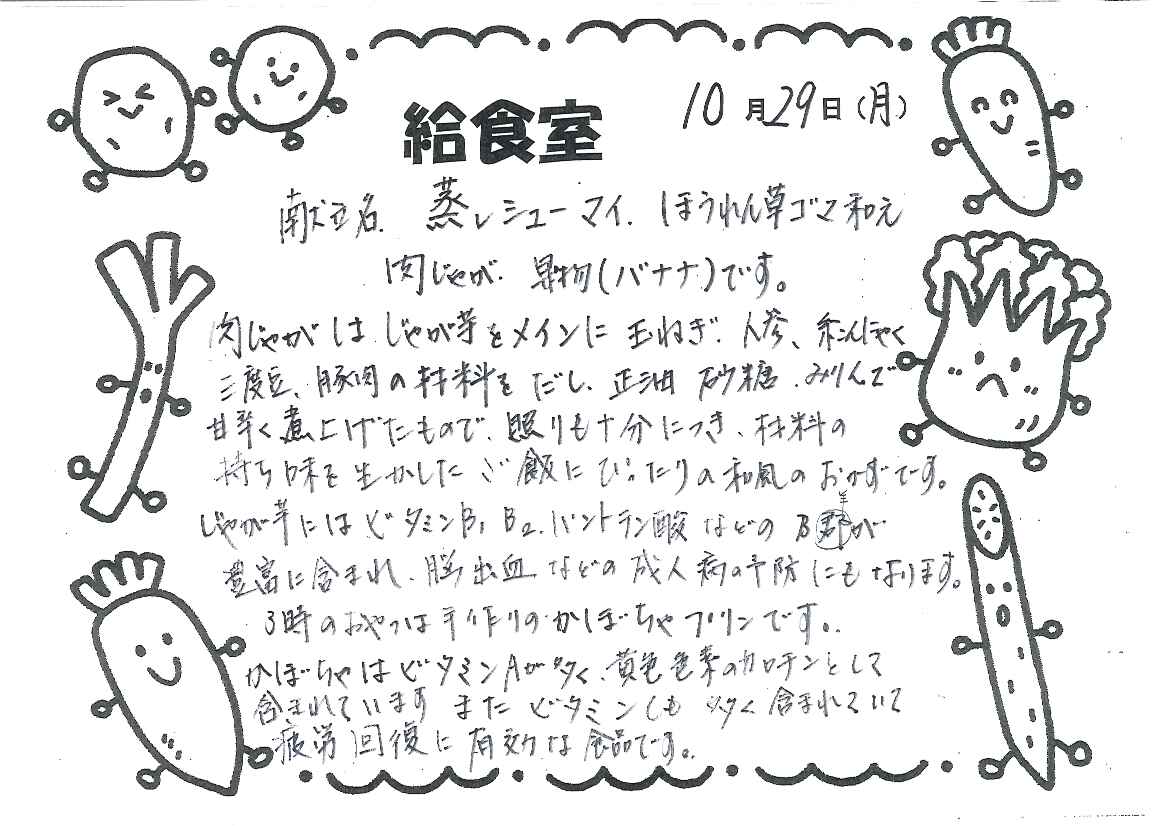 給食室
10月29日(月)
献立名. 蒸しシューマイ. ほうれん草ゴマ和え
肉じゃが. 果物(バナナ)です。
肉じゃがは じゃが芋をメインに 玉ねぎ. 人参、糸こんにゃく
三度豆、豚肉の材料を だし、正油 砂糖. みりんで
甘辛く煮上げたもので、照りも十分につき、材料の
持ち味を生かした ご飯にぴったりの和風のおかずです。
じゃが芋には ビタミンB₁ B₂. パントテン酸などの B群が
豊富に含まれ、脳出血などの成人病の予防にもなります。
3時のおやつは手作りのかぼちゃプリンです。
かぼちゃはビタミンAが多く、黄色色素のカロチンとして
含まれています また ビタミンCも 多く含まれていて
疲労回復に有効な食品です。